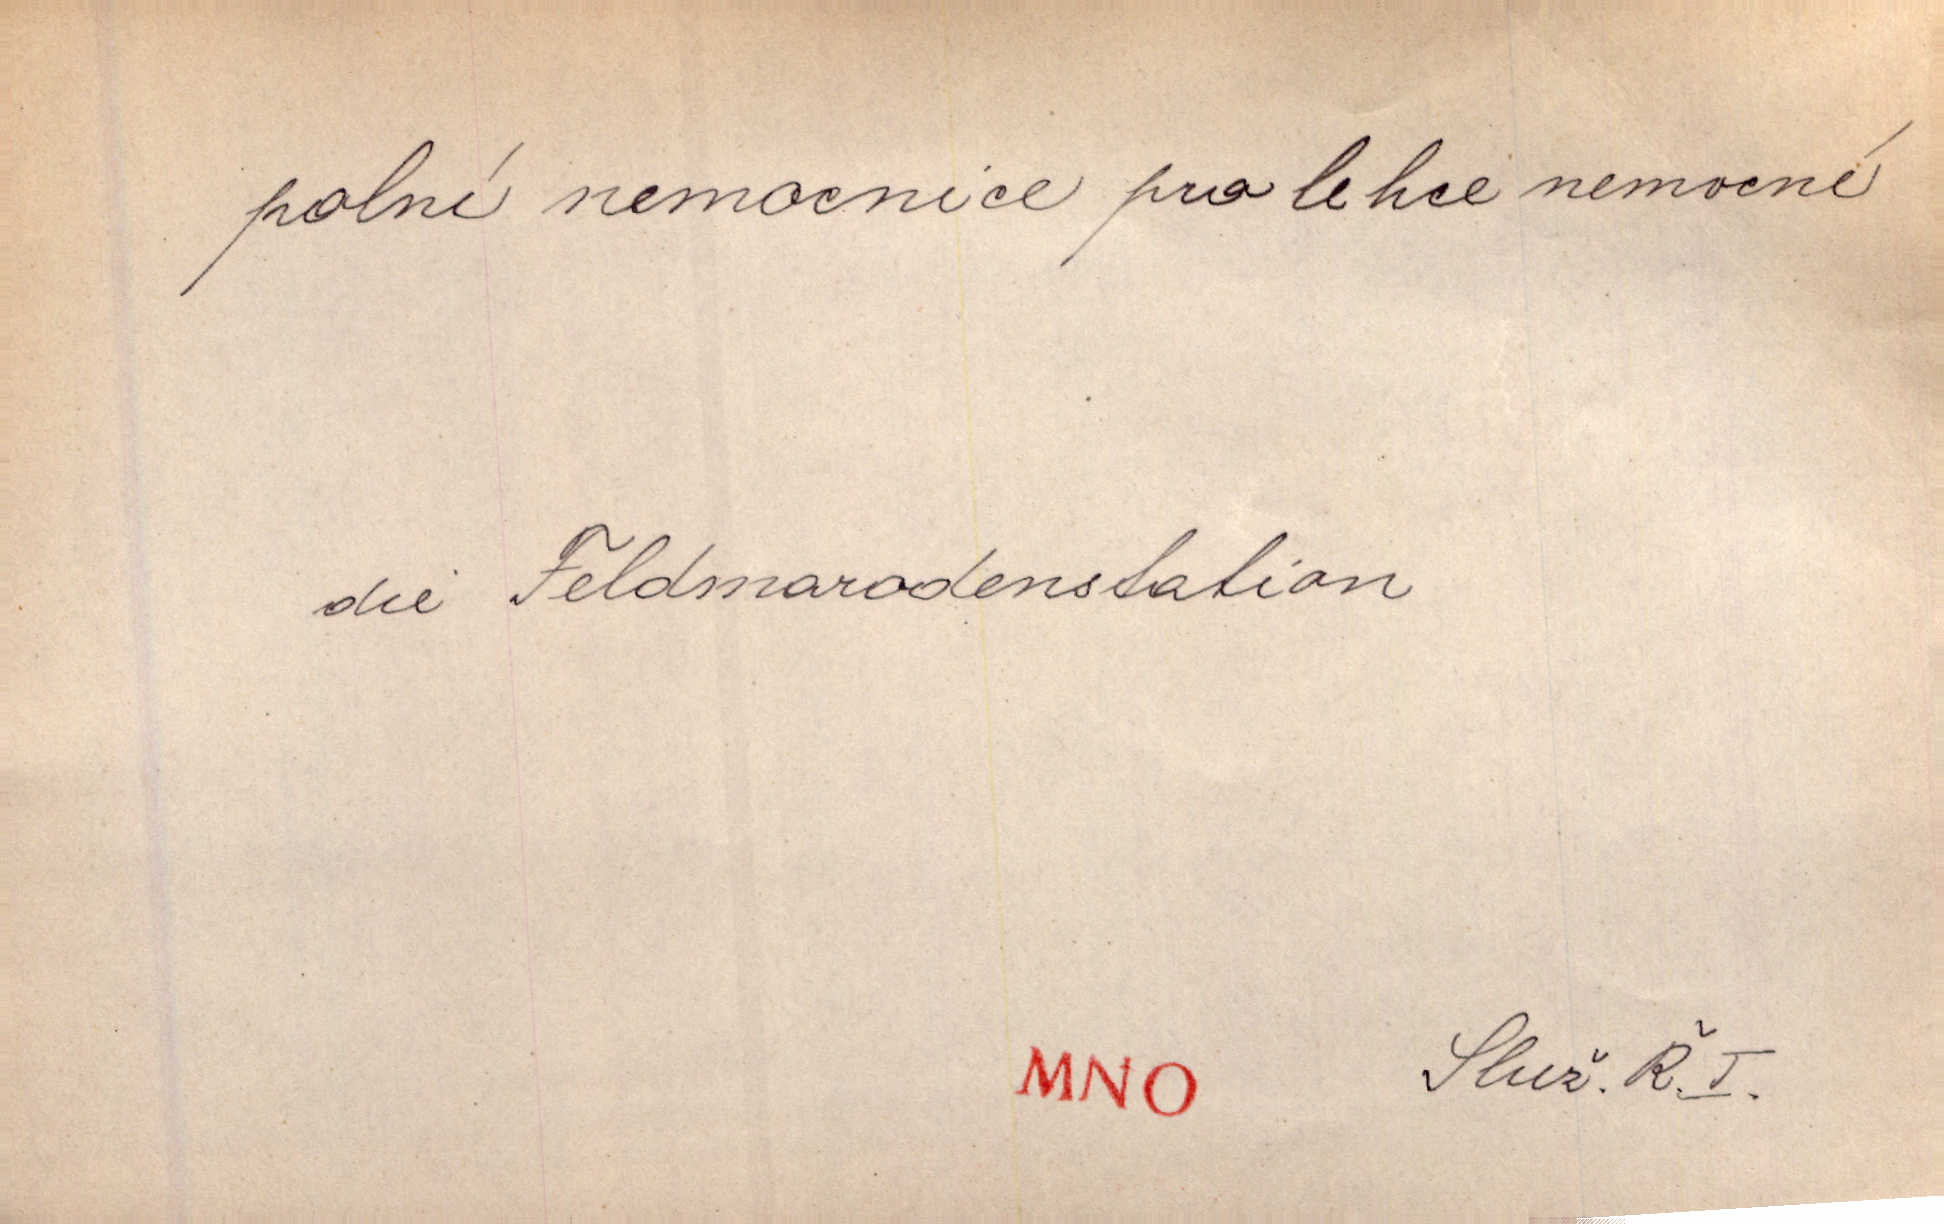 polní nemocnice pro lehce nemocné
die Feldmarodenstation
MNO Služ. Ř. I.